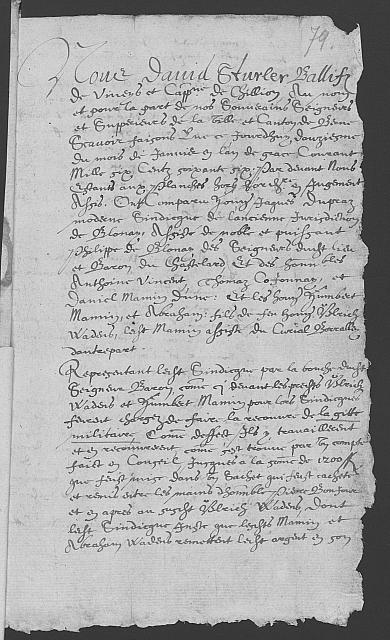 79.
Nous David Sturler Ballif
de Vivers et Cappne de Chillion Au nom
et pour la part de nos Souverains Seigneurs
et Superieurs de la Ville et Canton de Berne
Scavoir faisons Que ce Jourdhuy douziesme
du mois de Janvier en lan de grace Courant
Mille Six Centz soixante six Par devant Nous
Estants aux Planches en Jugement
Assis. Ont comparu Jaques Dupraz
moderne Sindicque de lancienne Jurisdiction
de Blonay, Assisté de noble et puissant
Philippe de Blonay des Seigneurs dudit lieu
et Baron du Chastelard Et des honnorables
Anthoine Vincent, Thomaz Cosonnay, et
Daniel Mamin dune: Et les hon Humbert
Mamin, et Abraham: fils de feu hon Ulrich
Waders, ledit Mamin assisté du Curial
dautrepart.
Representant ledit Sindicque par la bouche dudit
Seigneur Baron, come devant les Ulrich
Waders et Humbert Mamin pour lors Sindicques
furent chargez de faire la recouvre de la giette
militaire, Come Ils y travaillerent
et en recouvrerent come sest trouvé par compte
faict en Conseil Jusques à la some de 1200 ff
que feust mis dans un Sachet qui feust cacheté
et remis entre les mains dhonnorable Pierre
et en apres au susdit Ulrich Waders, Dont
ledit Sindicque que lesdits Mamin et
Abraham Waders remettent ledit argent en son